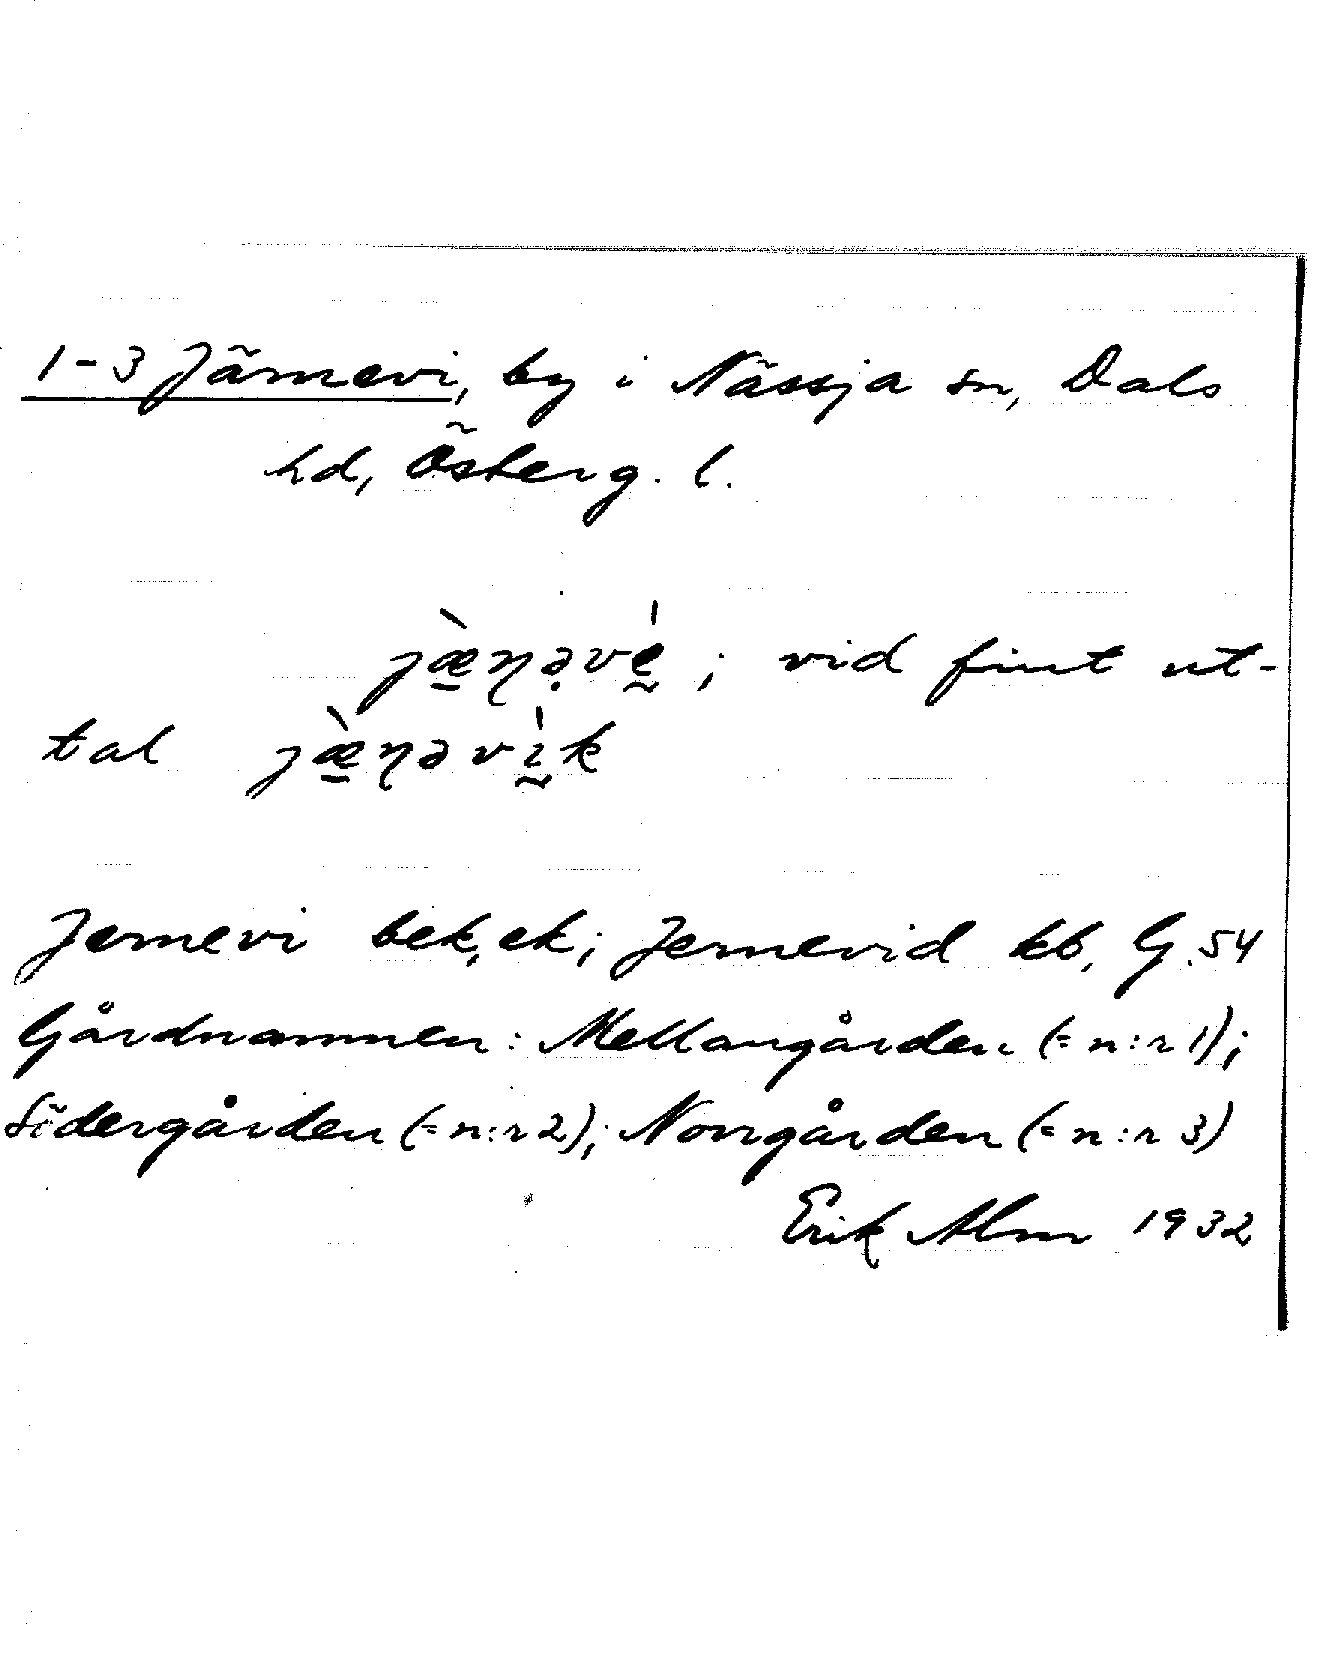 1-3 Järnevi, by i Nässja sn, Dals
hd, Österg. l.
jæ̠̀ɳə̣vḛ́ ; vid fint ut-
tal jæ̠̀ɳəvḭ̀k
Jernevi bek, ek; Jernevid kb, G. 54
Gårdnamnen: Mellangården (= n:r 1);
Södergården (= n:r 2); Norrgården (= n:r 3)
Erik Alm 1932